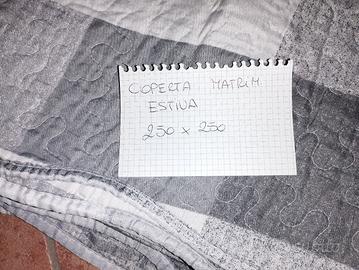 COPERTA MATRIM.
ESTIVA
250 x 250